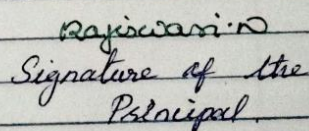 Rajiswari.N
Signature of the
Principal.